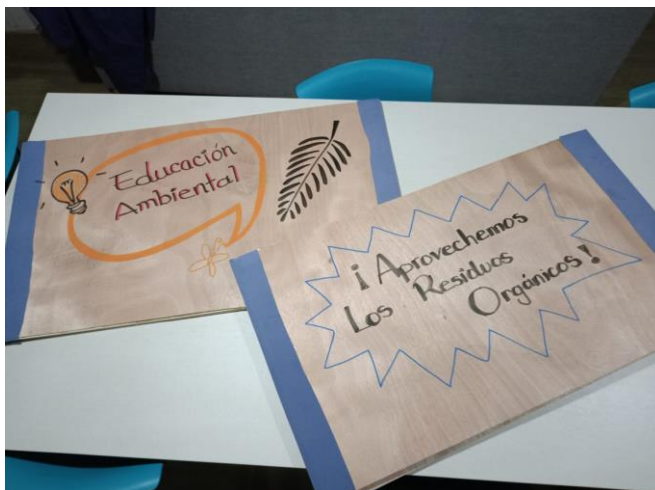 Educación
Ambiental
¡Aprovechemos
Los Residuos
Orgánicos!